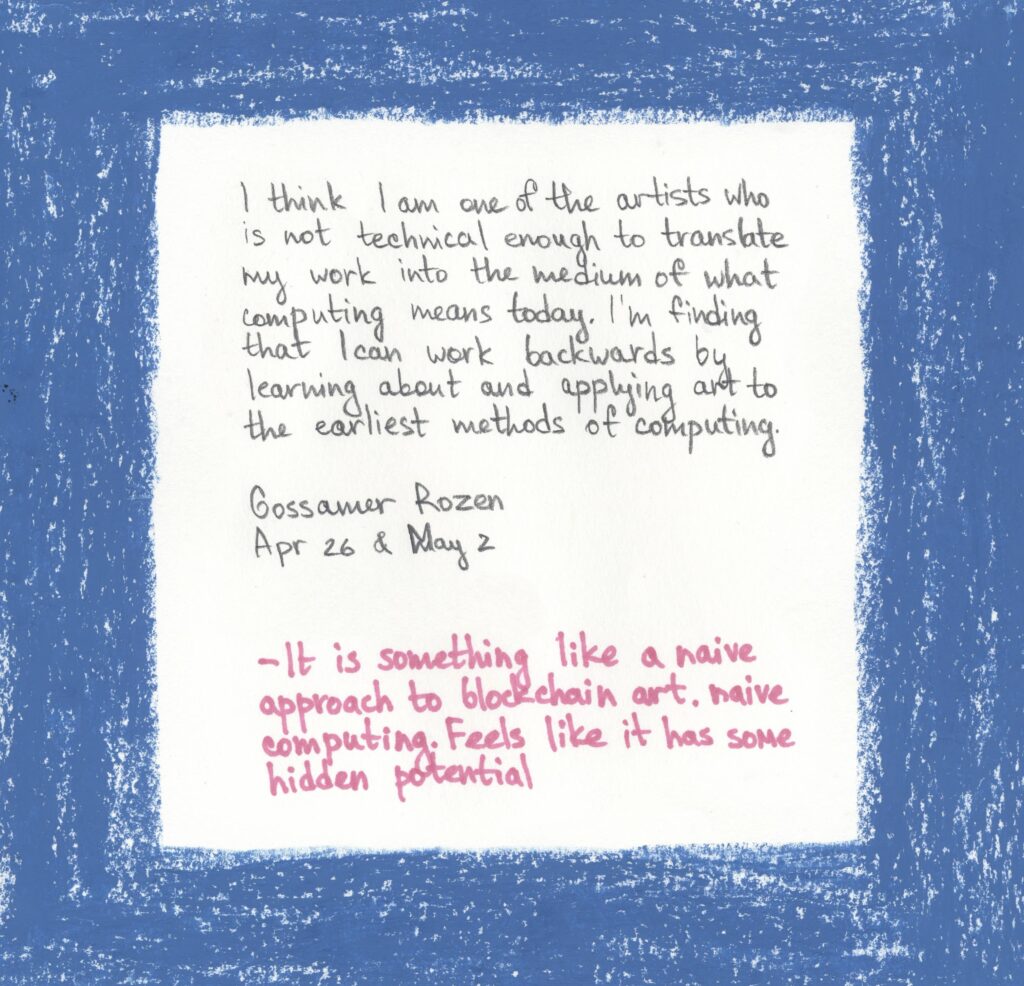 I think I am one of the artists who
is not technical enough to translate
my work into the medium of what
computing means today. I'm finding
that I can work backwards by
learning about and applying art to
the earliest methods of computing.
Gossamer Rozen
Apr 26 & May 2
-It is something like a naive
approach to blockchain art. naive
computing. Feels like it has some
hidden potential